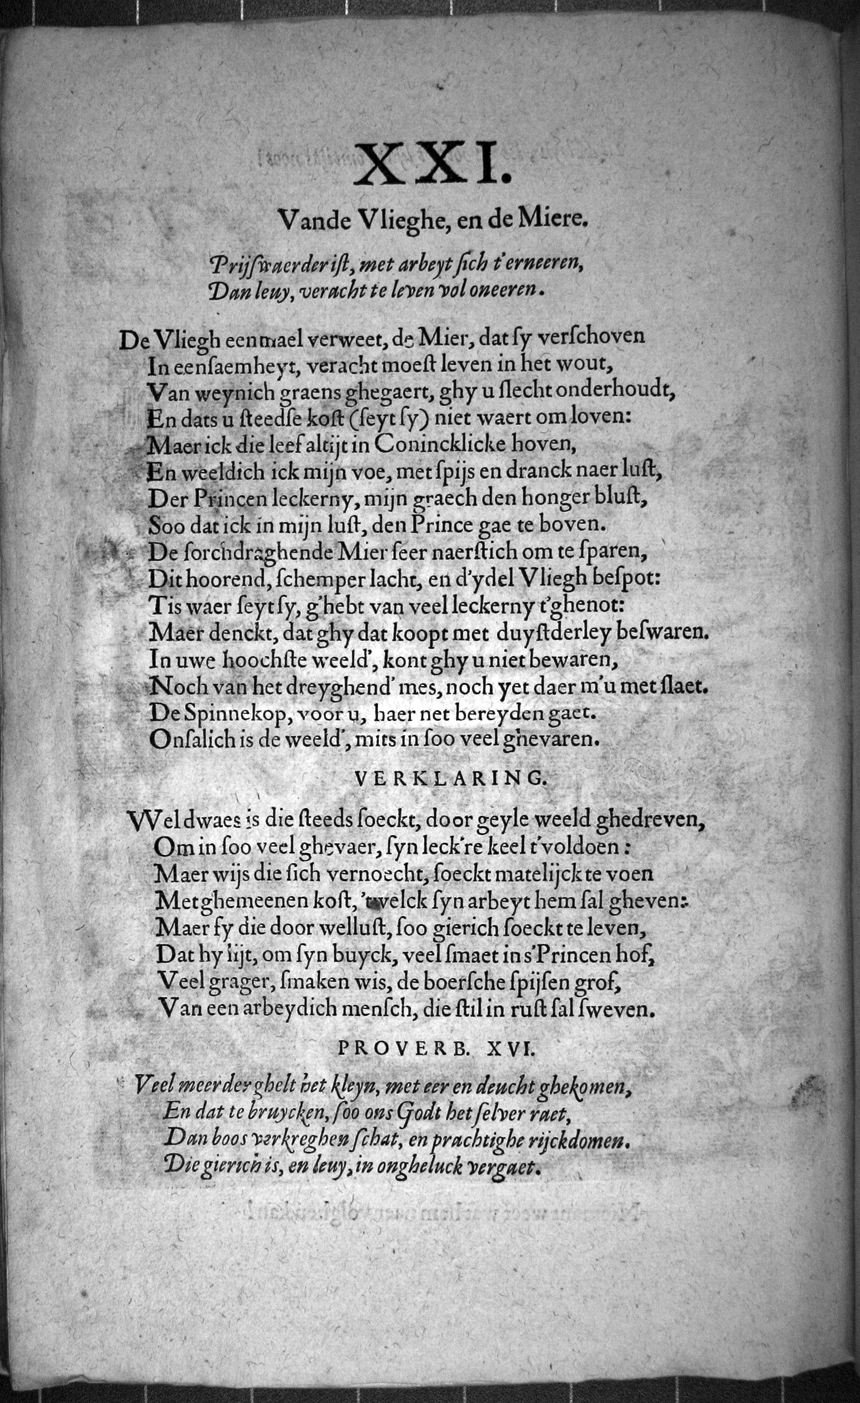 XXI.
Vande Vlieghe, en de Miere.
Prijſwaerder iſt, met arbeyt ſich t'erneeren,
Dan leuy, veracht te leven vol oneeren.
De Vliegh eenmael verweet, de Mier, dat ſy verſchoven
In eenſaemheyt, veracht moeſt leven in het wout,
Van weynich graens ghegaert, ghy u ſlecht onderhoudt,
En dats u ſteedſe koſt (ſeyt ſy) niet waert om loven:
Maer ick die leef altijt in Conincklicke hoven,
En weeldich ick mijn voe, met ſpijs en dranck naer luſt,
Der Princen leckerny, mijn graech den honger bluſt,
Soo dat ick in mijn luſt, den Prince gae te boven.
De ſorchdraghende Mier ſeer naerſtich om te ſparen,
Dit hoorend, ſchemper lacht, en d'ydel Vliegh beſpot:
Tis waer ſeyt ſy, g'hebt van veel leckerny t'ghenot:
Maer denckt, dat ghy dat koopt met duyſtderley beſwaren.
In uwe hoochſte weeld', kont ghy u niet bewaren,
Noch van het dreyghend' mes, noch yet daer m'u met ſlaet.
De Spinnekop, voor u, haer net bereyden gaet.
Onſalich is de weeld', mits in ſoo veel ghevaren.
VERKLARING.
Wel dwaes is die ſteeds ſoeckt, door geyle weeld ghedreven,
Om in ſoo veel ghevaer, ſyn leck're keel t'voldoen :
Maer wijs die ſich vernoecht, ſoeckt matelijck te voen
Met ghemeenen koſt, 'twelck ſyn arbeyt hem ſal gheven:
Maer ſy die door welluſt, ſoo gierich ſoeckt te leven,
Dat hy lijt, om ſyn buyck, veel ſmaet in s'Princen hof,
Veel grager, ſmaken wis, de boerſche ſpijſen grof,
Van een arbeydich menſch, die ſtil in ruſt ſal ſweven.
PROVERB. XVI.
Veel meerder ghelt het kleyn, met eer en deucht ghekomen,
En dat te bruycken, ſoo ons Godt het ſelver raet,
Dan boos verkreghen ſchat, en prachtighe rijckdomen.
Die gierich is, en leuy, in ongheluck vergaet.